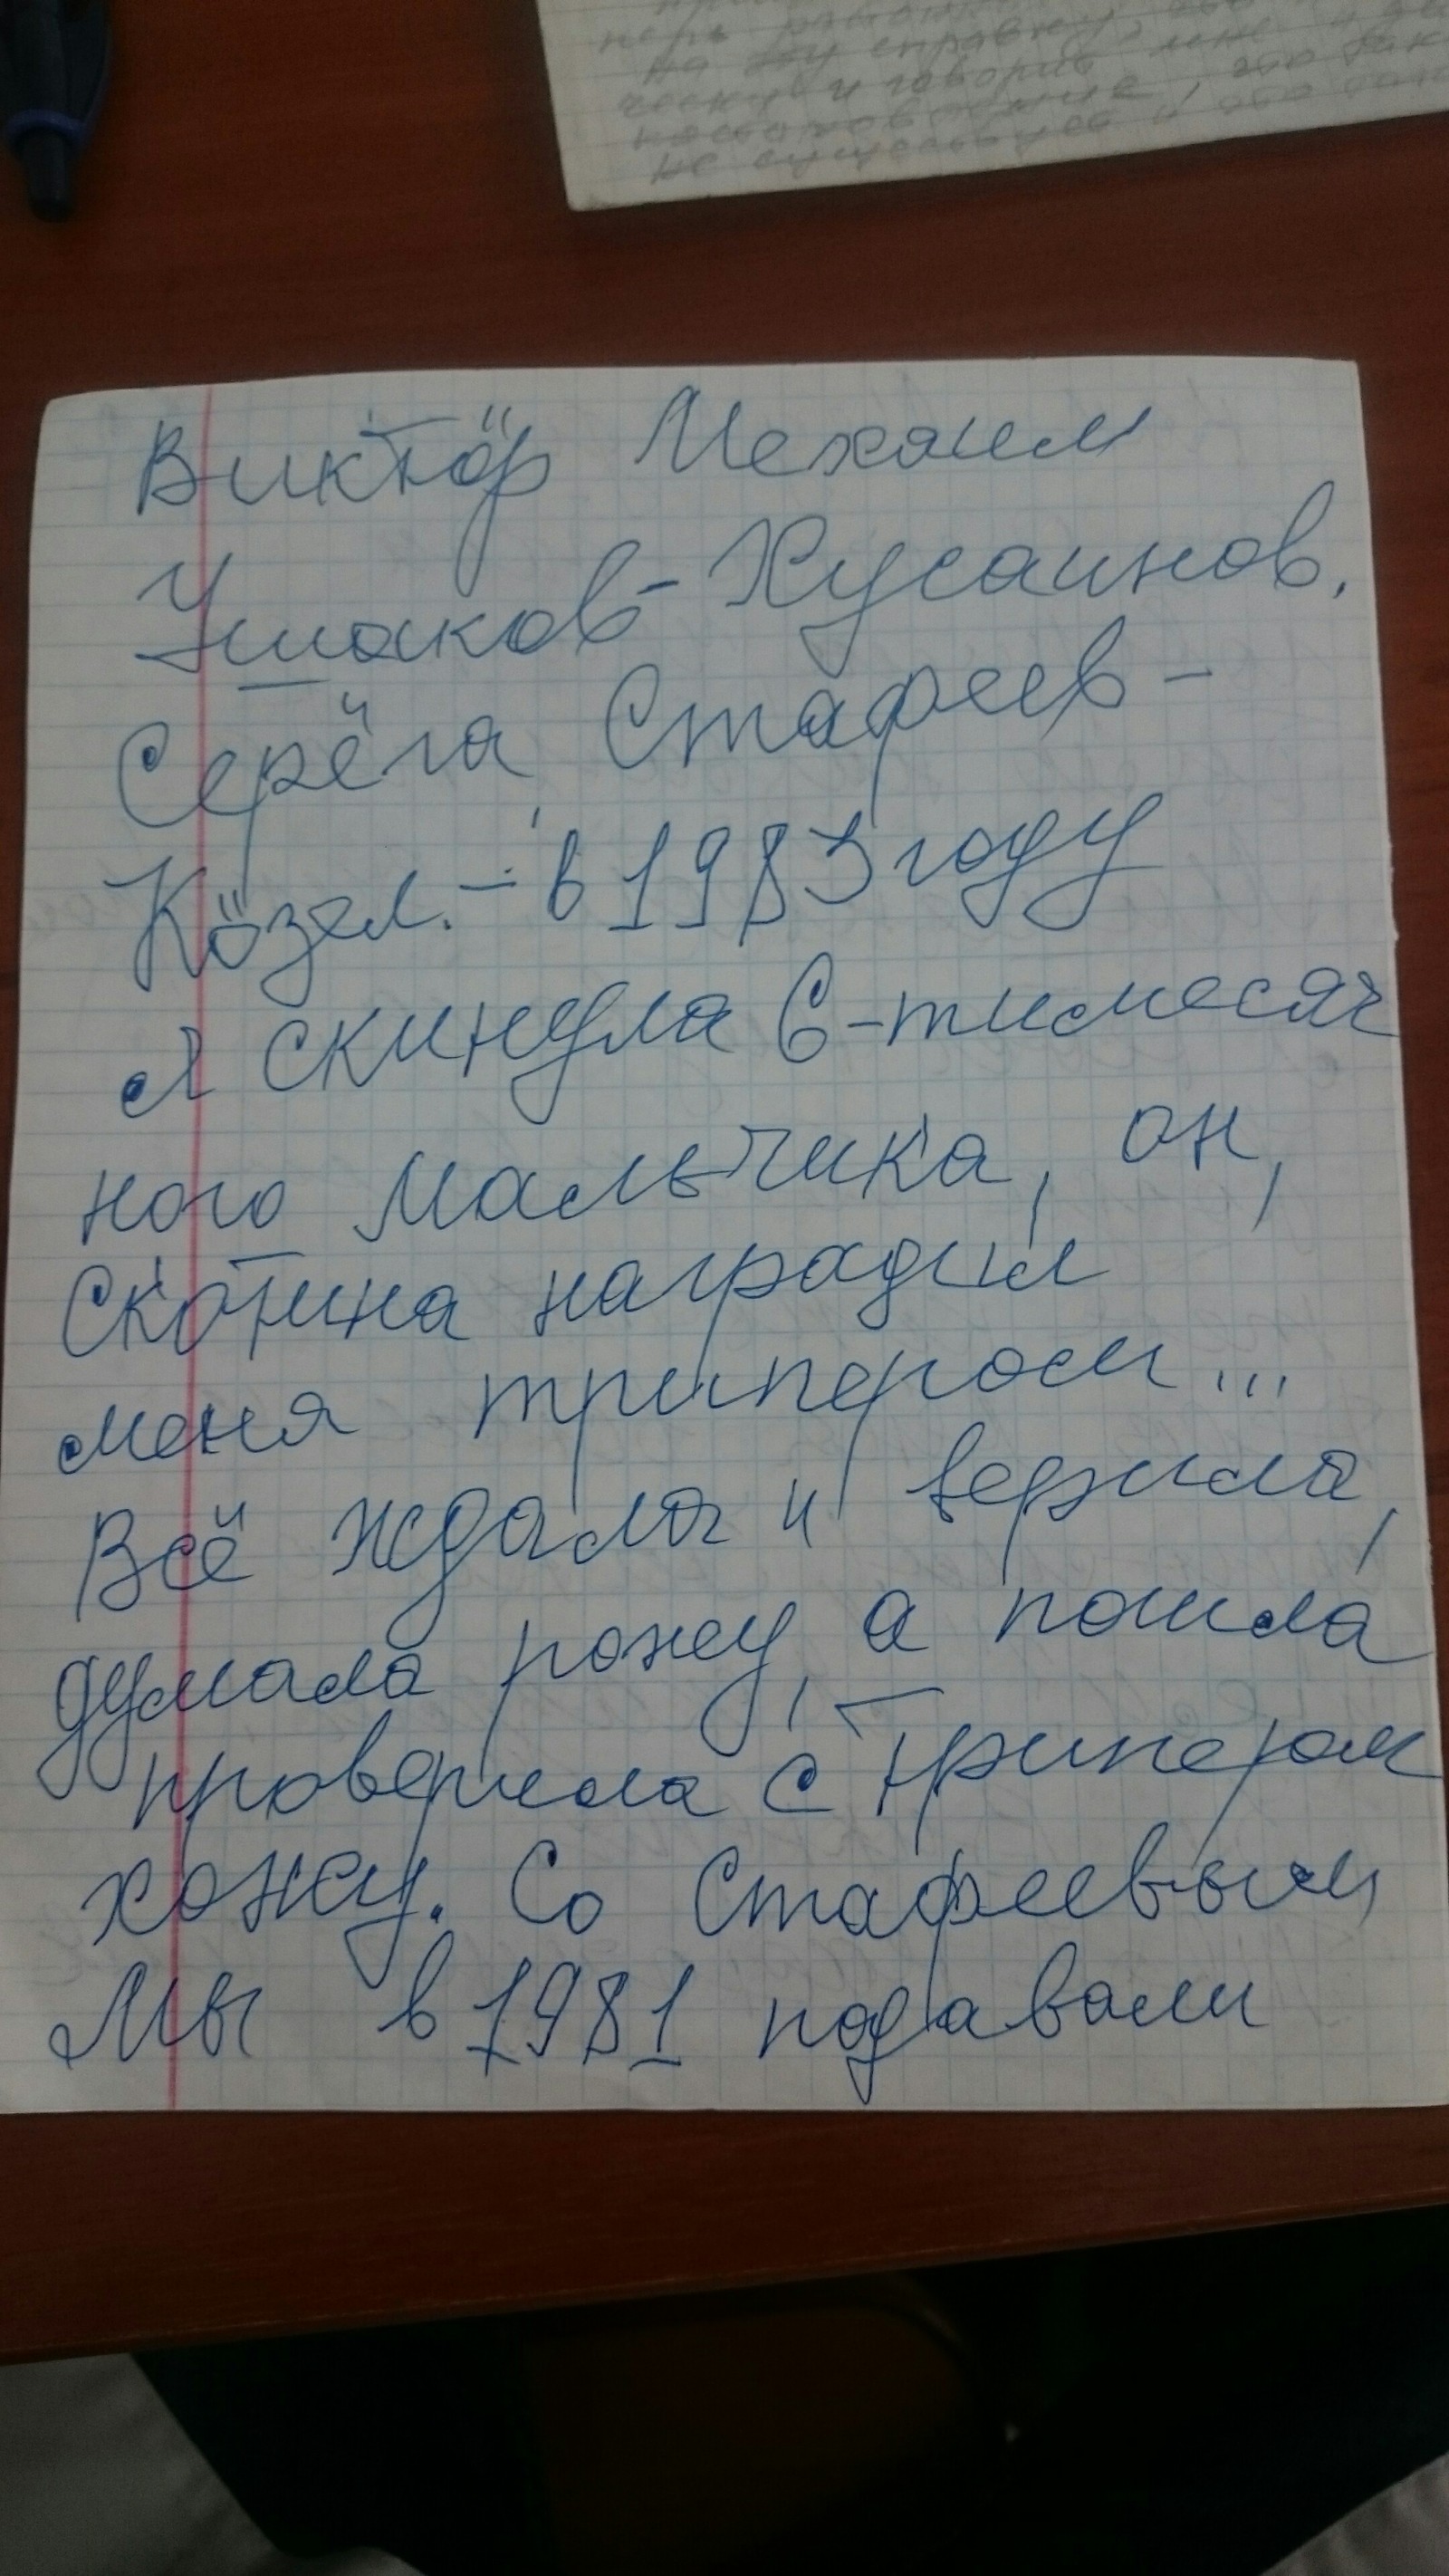 не существует
Виктор Мехаим
Ушаков - Хусаинов.
Серёга Стафеев -
Козел. - в 1983 году
я скинула 6-тимесяч
ного мальчика, он,
Скотина наградил
меня трипером...
Всё ждала и верила,
думала рожу, а пошла
проверила с трипером
хожу. Со Стафеевым
мы в 1981 подавали